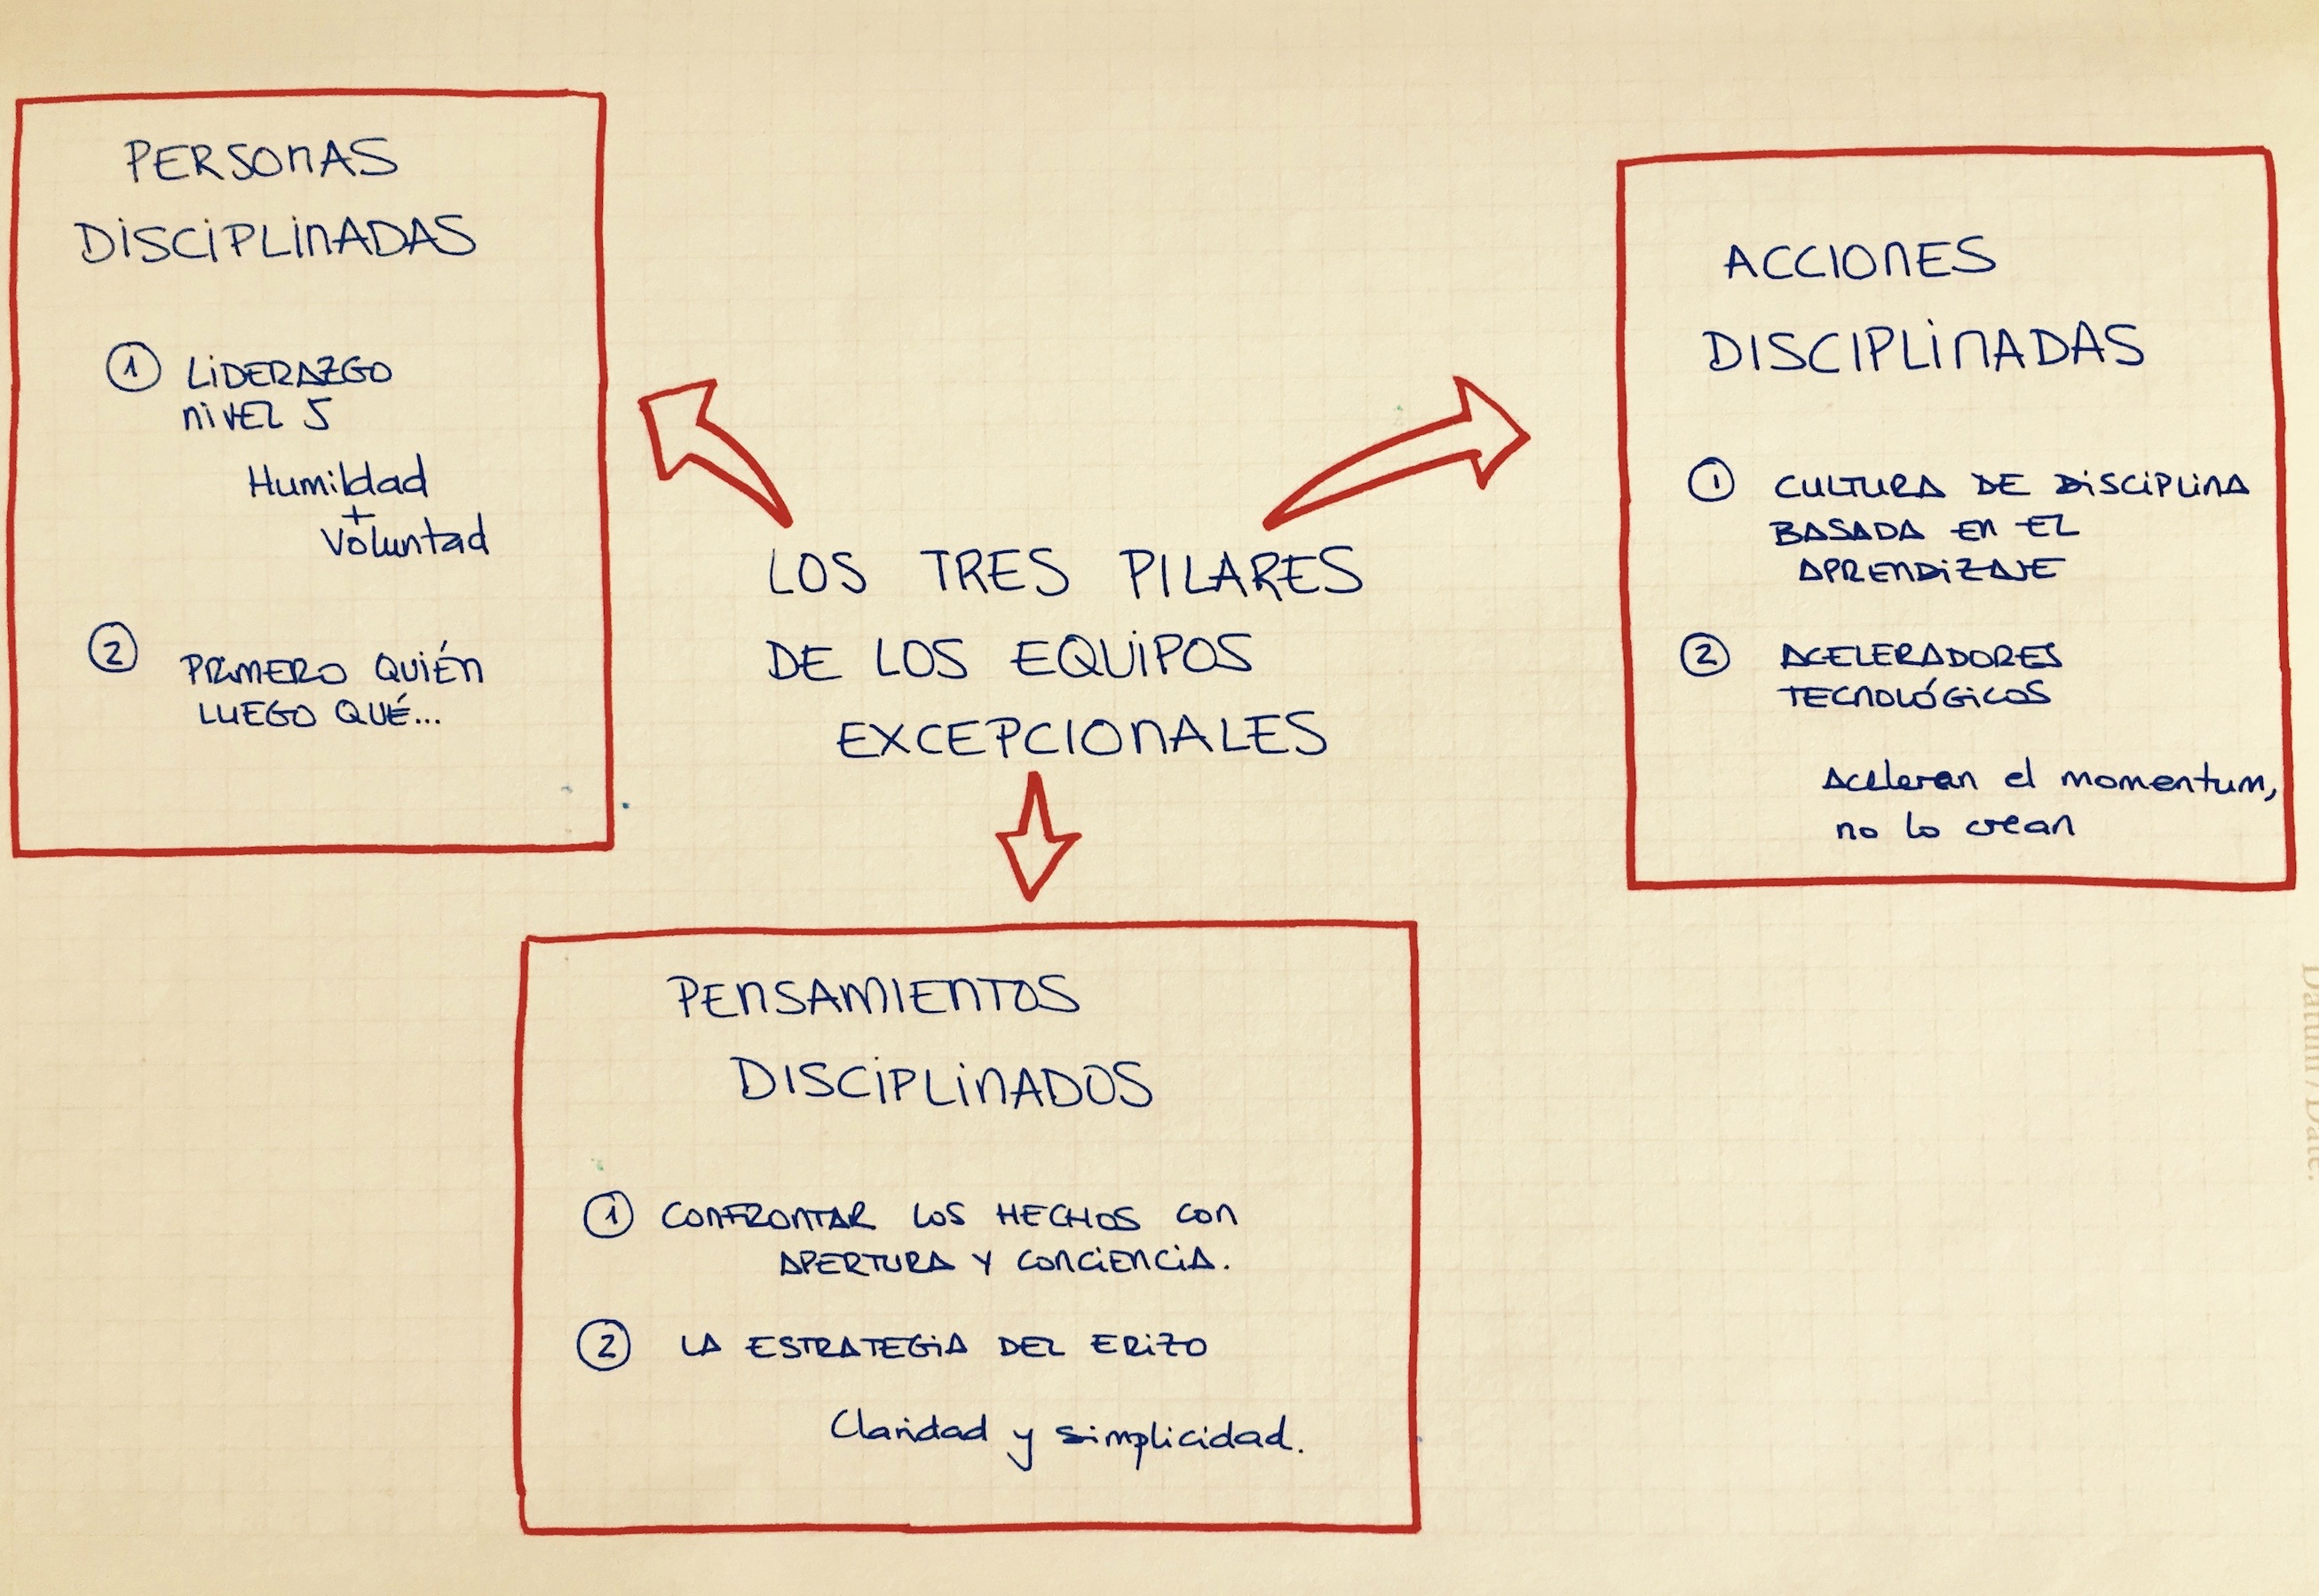 PERSONAS
DISCIPLINADAS
1 LIDERAZGO
NIVEL 5
Humildad
+
Voluntad
2 PRIMERO QUIÉN
LUEGO QUÉ...
LOS TRES PILARES
DE LOS EQUIPOS
EXCEPCIONALES
ACCIONES
DISCIPLINADAS
1 CULTURA DE DISCIPLINA
BASADA EN EL
APRENDIZAJE
2 ACELERADORES
TECNOLÓGICOS
Aceleran el momentum,
no lo crean
PENSAMIENTOS
DISCIPLINADOS
1 CONFRONTAR LOS HECHOS CON
APERTURA Y CONCIENCIA.
2 LA ESTRATEGIA DEL ERIZO
Claridad y simplicidad.
Datum / Date: